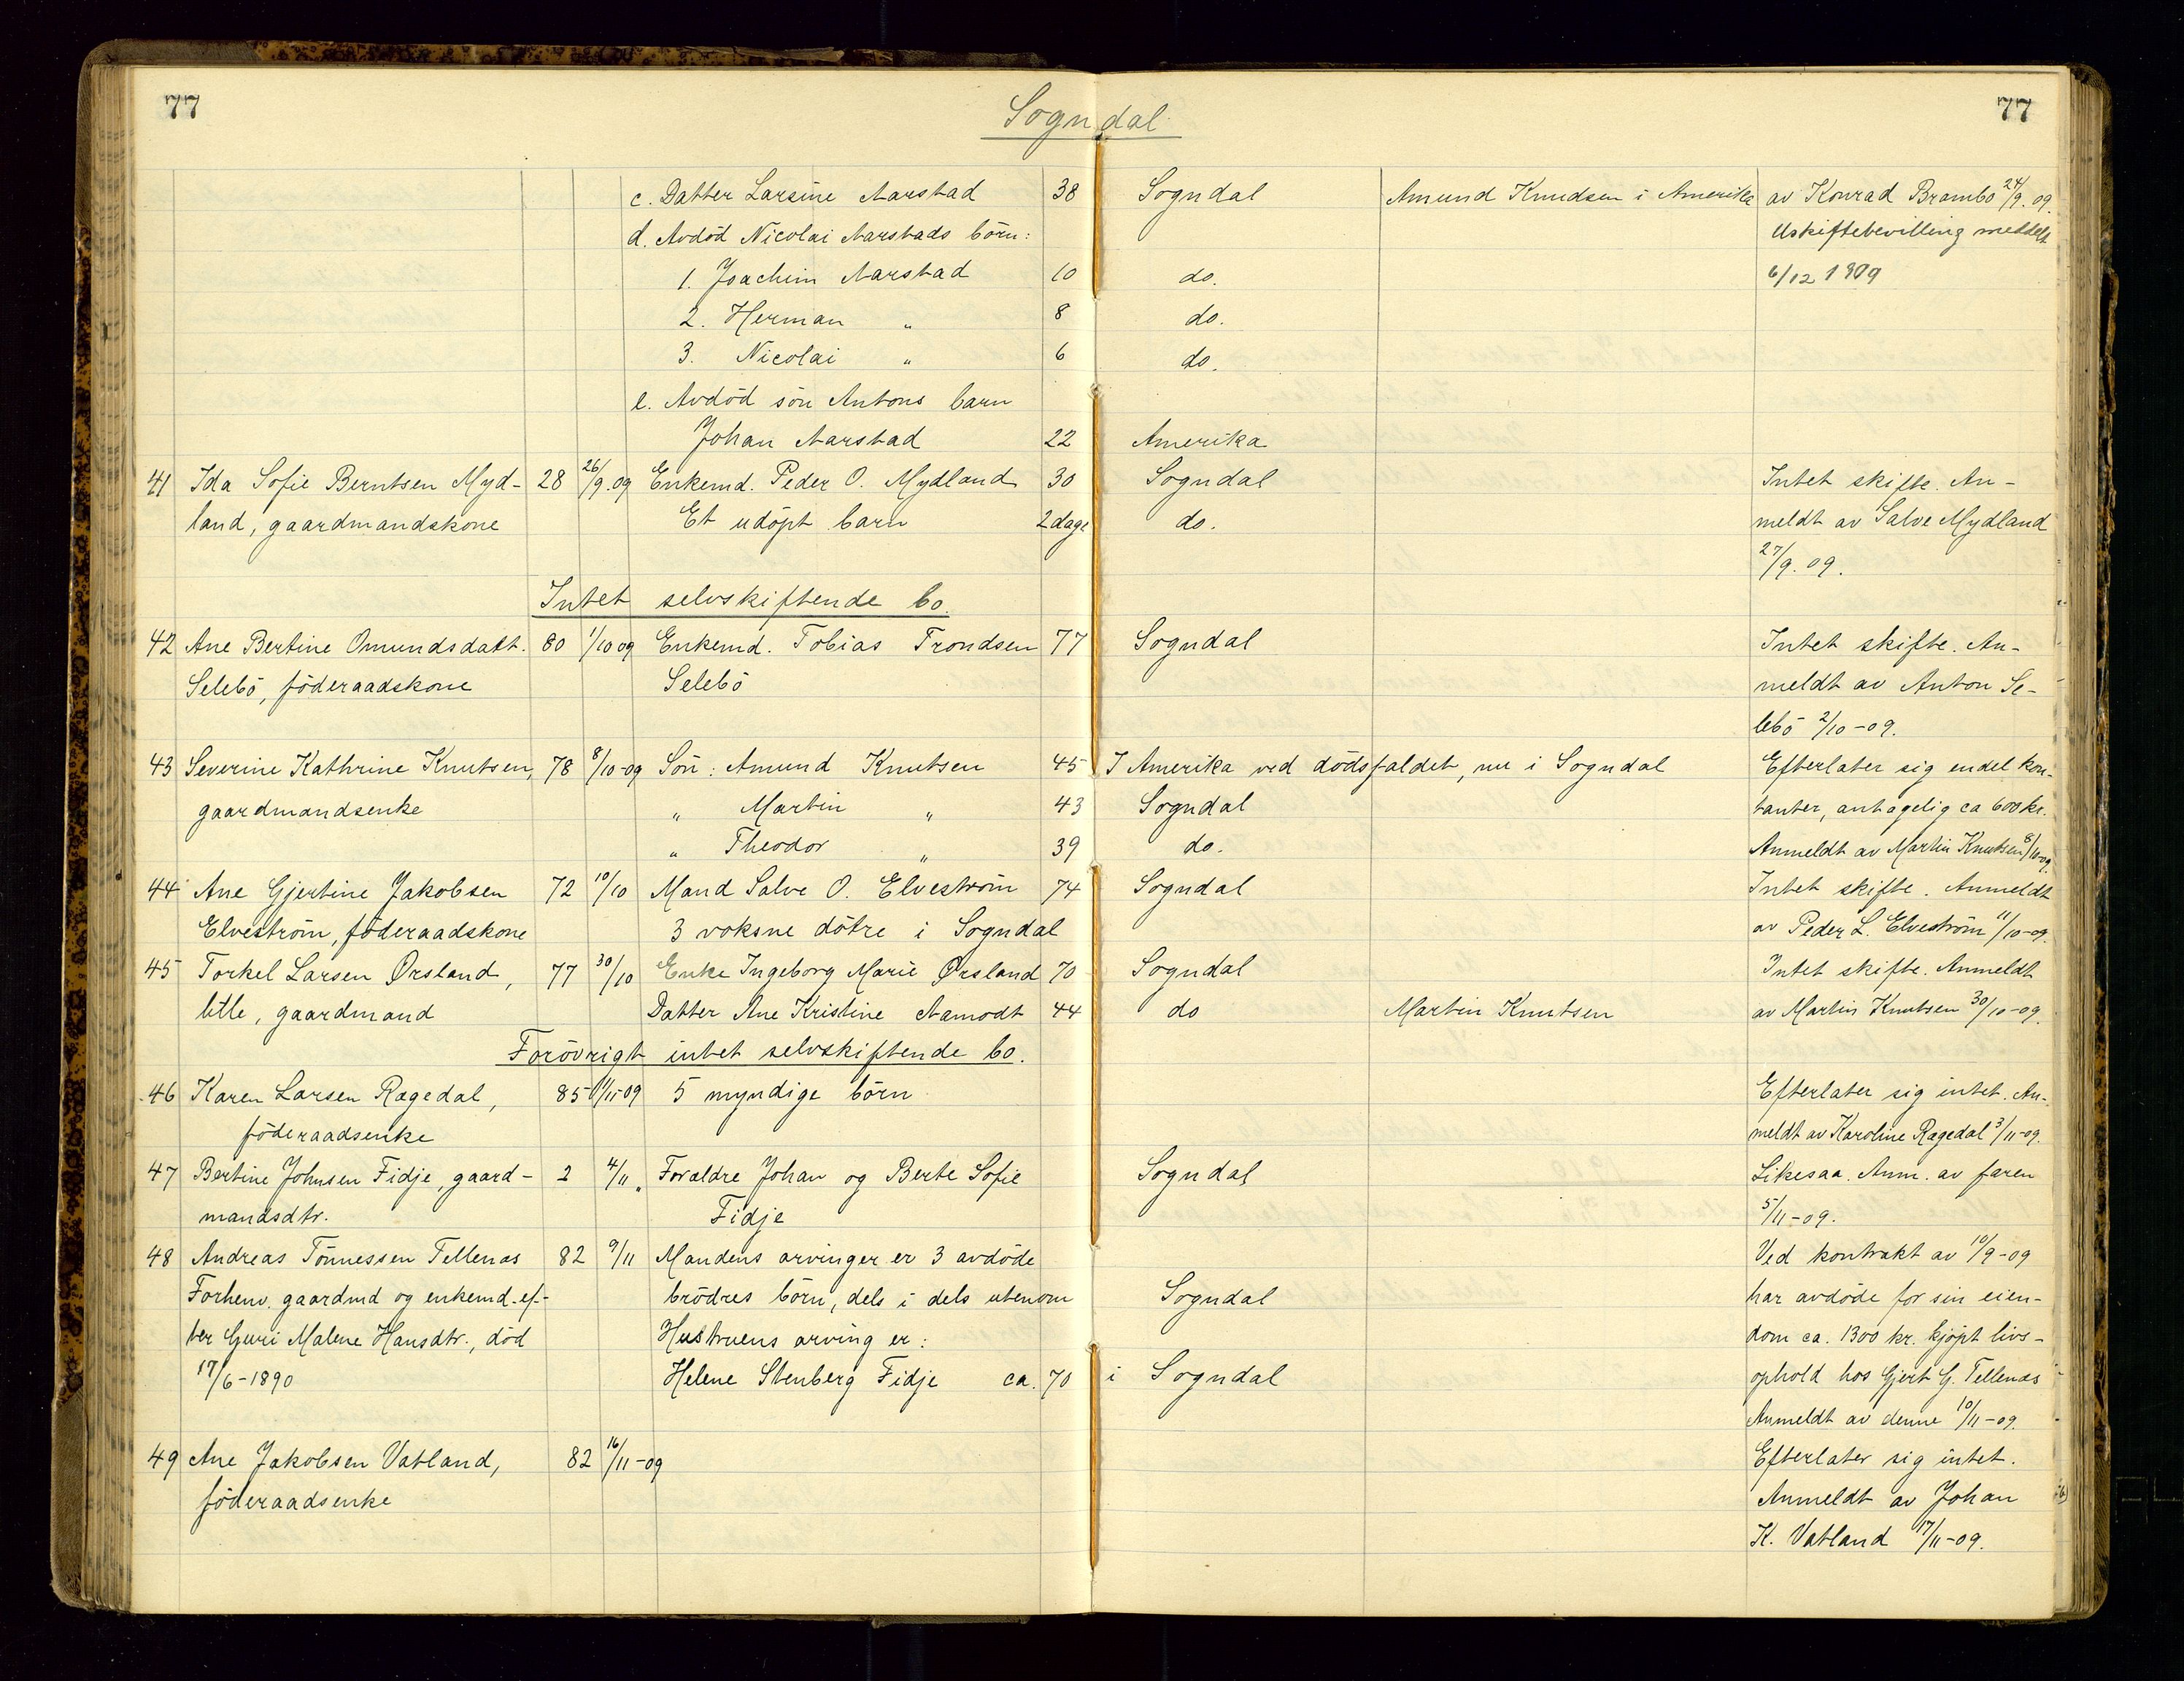 77 Sogndal 77
c. Datter Larsine Aarstad 38 Sogndal Amund Knudsen i Amerika av Konrad Brambo 24/9. 09.
d. Avdöd Nicolai Aarstads börn: Uskiftebevilling meddelt
1. Joachim Aarstad 10 do. 6/12 1909
2. Herman " 8 do.
3. Nicolai " 6 do.
e. Avdöd sön Antons barn
Johan Aarstad 22 Amerika
41 Ida Sofie Berntsen Myd- 28 26/9. 09 Enkemd. Peder O. Mydland 30 Sogndal Intet skifte. An-
land, gaardmandskone Et udöpt barn 2 dage do. meldt av Salve Mydland
27/9. 09.
Intet selvskiftende bo.
42 Ane Bertine Omundsdatt. 80 1/10 09 Enkemd. Tobias Trondsen 77 Sogndal Intet skifte. An-
Selebö, föderaadskone Selebö meldt av Anton Se-
lebö 2/10-09.
43 Severine Kathrine Knutsen, 78 8/10-09 Sön: Amund Knutsen 45 I Amerika ved dödsfaldet, nu i Sogndal Efterlater sig endel kon-
gaardmandsenke " Martin " 43 Sogndal tanter, antagelig ca 600 kr.
" Theodor " 39 do. Anmeldt av Martin Knutsen 8/10-09.
44 Ane Gjertine Jakobsen 72 10/10 Mand Salve O. Elveström 74 Sogndal Intet skifte. Anmeldt
Elveström, föderaadskone 3 voksne dötre i Sogndal av Peder L. Elveström 11/10-09.
45 Torkel Larsen Ørsland, 77 30/10 Enke Ingeborg Marie Ørsland 70 Sogndal Intet skifte. Anmeldt
litle, gaardmand Datter Ane Kristine Aamodt 44 do Martin Knutsen av Martin Knutsen 30/10-09.
Forövrigt intet selvskiftende bo.
46 Karen Larsen Rægedal, 85 1/11-09 5 myndige börn Efterlater sig intet. An-
föderaadsenke meldt av Karoline Rægedal 3/11-09.
47 Bertine Johnsen Fidje, gaard- 2 4/11 " Forældre Johan og Berte Sofie Sogndal Likesaa. Anm. av faren
mandsdtr. Fidje 5/11-09.
48 Andreas Tönnessen Tellenæs 82 9/11 Mandens arvinger er 3 avdöde Ved kontrakt av 10/9-09
Forhenv. gaardmd og enkemd. ef- brödres börn, dels i dels utenom Sogndal har avdöde for sin eien-
ter Guri Malene Hansdtr., död Hustruens arving er: dom ca. 1300 kr. kjöpt livs-
17/6-1890 Helene Stenberg Fidje ca. 70 i Sogndal ophold hos Gjert G. Tellenæs
Anmeldt av denne 10/11-09.
49 Ane Jakobsen Vatland, 82 16/11-09 Efterlater sig intet.
föderaadsenke Anmeldt av Johan
K. Vatland 17/11-09.